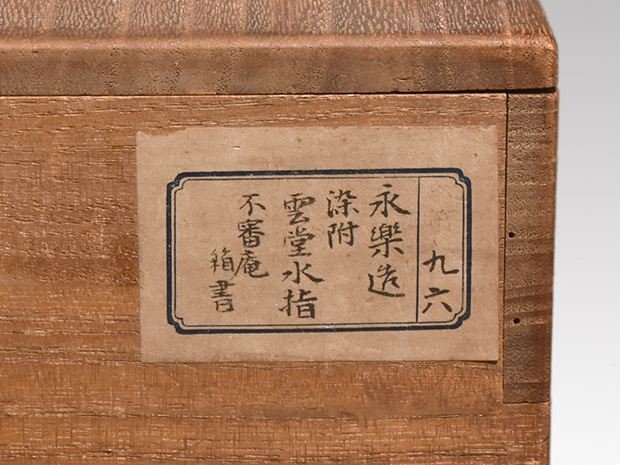 九六
永樂造
染附
雲堂水指
不審庵
箱書